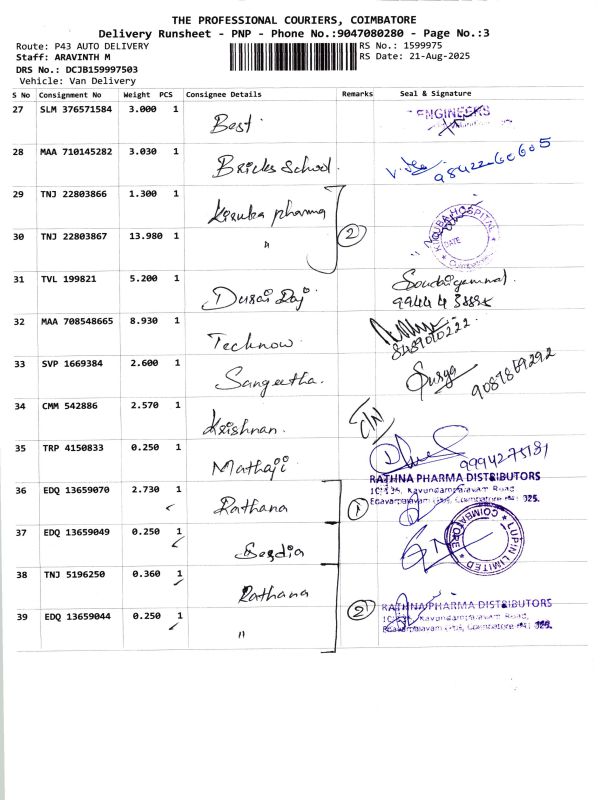 THE PROFESSIONAL COURIERS, COIMBATORE
Delivery Runsheet - PNP - Phone No.:9047080280 - Page No.:3
Route: P43 AUTO DELIVERY RS No.: 1599975
Staff: ARAVINTH M RS Date: 21-Aug-2025
DRS No.: DCJB159997503
Vehicle: Van Delivery
S No Consignment No Weight PCS Consignee Details Remarks Seal & Signature
27 SLM 376571584 3.000 1 Best ENGINEERS
28 MAA 710145282 3.030 1 Bricks School.
29 TNJ 22803866 1.300 1 Kiruba pharma KIRUBA HOSPITAL
30 TNJ 22803867 13.980 1 " 2 DATE
31 TVL 199821 5.200 1 Durai Raj
32 MAA 708548665 8.930 1 Tecknow
33 SVP 1669384 2.600 1 Sangeetha. Surya 9087869292
34 CMM 542886 2.570 1 Krishnan. C/N
35 TRP 4150833 0.250 1 Mathaji 9994275181
RATHNA PHARMA DISTRIBUTORS
36 EDQ 13659070 2.730 1 Rathana 1
37 EDQ 13659049 0.250 1 Serdia LUPIN LIMITED * COIMBATORE *
38 TNJ 5196250 0.360 1 Rathana
39 EDQ 13659044 0.250 1 " 2 RATHNA PHARMA DISTRIBUTORS